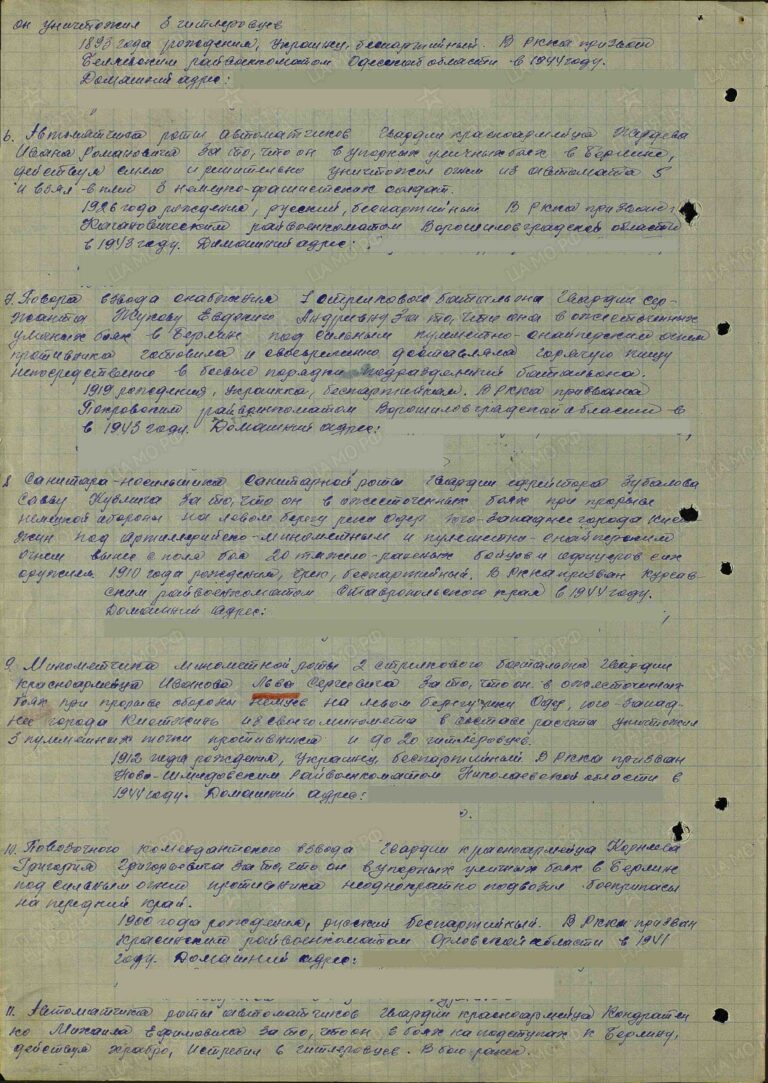 он уничтожил 3 гитлеровцев
1893 года рождения, украинец, беспартийный. В РККА призван
Беляевским райвоенкоматом Одесской области в 1944 году.
Домашний адрес:
6. Автоматчика роты автоматчиков гвардии красноармейца
Ивана Романовича За то, что он в упорных уличных боях в Берлине,
действуя смело и решительно уничтожил огнем из автомата 5
и взял в плен 3 немецко-фашистских солдат.
1926 года рождения, русский, беспартийный В РККА призван
Кагановическим райвоенкоматом Ворошиловградской области
в 1943 году. Домашний адрес:
7. Повара взвода снабжения 1 стрелкового батальона гвардии сер-
жанта Жукову Евдокию Андреевну За то, что она в ожесточенных
уличных боях в Берлин под сильным пулеметно-снайперским огнем
противника готовила и своевременно доставляла горячую пищу
непосредственно в боевые порядки подразделений батальона.
1919 рождения, украинка, беспартийная. В РККА призвана
Покровским райвоенкоматом Ворошиловградской области в
в 1943 году. Домашний адрес:
8 Санитара-носильщика санитарной роты гвардии ефрейтора Зубалова
Савву Кузмича За то, что он в ожесточенных боях при прорыве
немецкой обороны на левом берегу реки Одер юго-западнее города Кюст-
жин под артиллерийско-минометным и пулеметно-снайперским
огнем вынес с поля боя 20 тяжело-раненых бойцов и офицеров с их
оружием. 1910 года рождения, грек, беспартийный. В РККА призван Курсав-
ским райвоенкоматом Ставропольского края в 1944 году.
Домашний адрес:
9. Минометчика минометной роты 2 стрелкового батальона гвардии
красноармейца Иванова Льва Сергеевича За то, что он в ожесточенных
боях при прорыве обороны немцев на левом берегу реки Одер, юго-запад-
нее города из своего миномета в составе расчета уничтожил
3 пулеметных точки противника и до 20 гитлеровцев.
1912 года рождения, украинец, беспартийный. В РККА призван
Ново-Шмидовским райвоенкоматом Николаевской области в
1944 году. Домашний адрес:
10. Повозочного комендантского взвода гвардии красноармейца Корнеева
Григория Григорьевича За то, что он в упорных уличных боях в Берлин
под сильным огнем противника неоднократно подвозил боеприпасы
на передний край.
1900 года рождения, русский беспартийный. В РККА призван
райвоенкоматом Орловской области в 1941
году. Домашний адрес:
11. Автоматчика роты автоматчиков гвардии красноармейца Кондратен
ко Михаила Ефимовича За то, что он в боях на подступах к Берлину,
действуя храбро, истребил 6 гитлеровцев. В бою ранен.